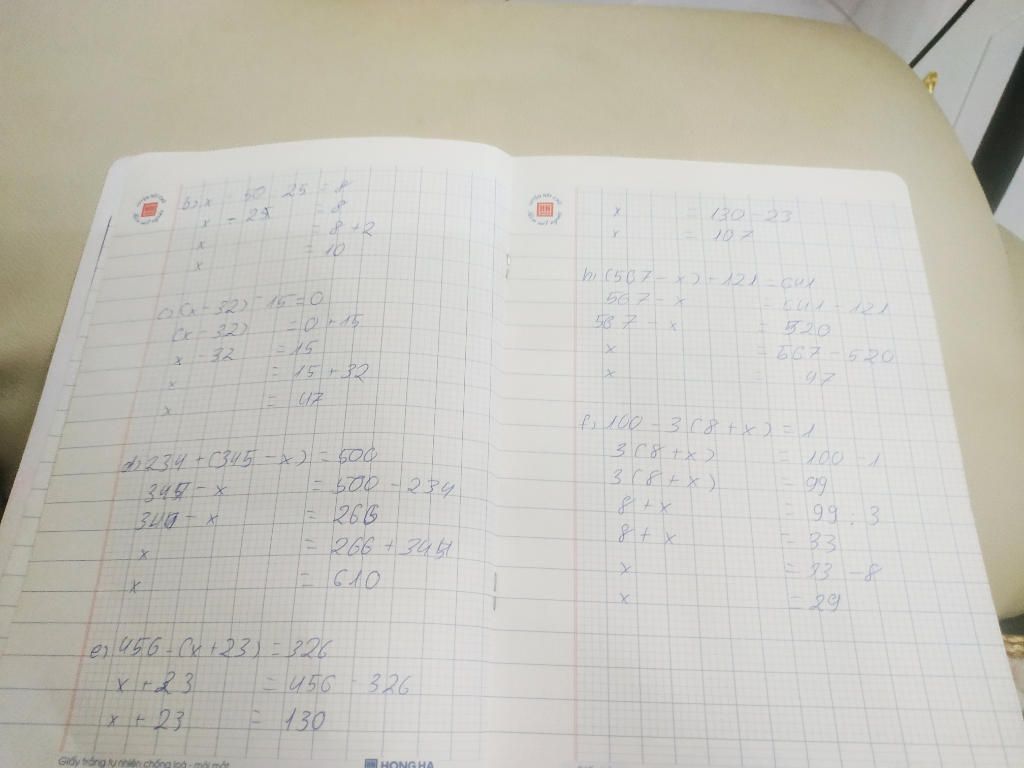 b, x - 50 : 25 = 8
x - 2 = 8
x = 8 + 2
x = 10
c, (x - 32) - 15 = 0
(x - 32) = 0 + 15
x - 32 = 15
x = 15 + 32
x = 47
d, 234 + (345 - x) = 500
345 - x = 500 - 234
345 - x = 266
x = 266 + 344
x = 610
e, 456 - (x + 23) = 326
x + 23 = 456 - 326
x + 23 = 130
Giấy trắng tự nhiên chống loá - mỏi mắt
HONG HA
x = 130 - 23
x = 107
h, (567 - x) + 121 = 641
567 - x = 641 - 121
567 - x = 520
x = 567 - 520
x = 47
f, 100 - 3(8 + x) = 1
3(8 + x) = 100 - 1
3(8 + x) = 99
8 + x = 99 : 3
8 + x = 33
x = 33 - 8
x = 29